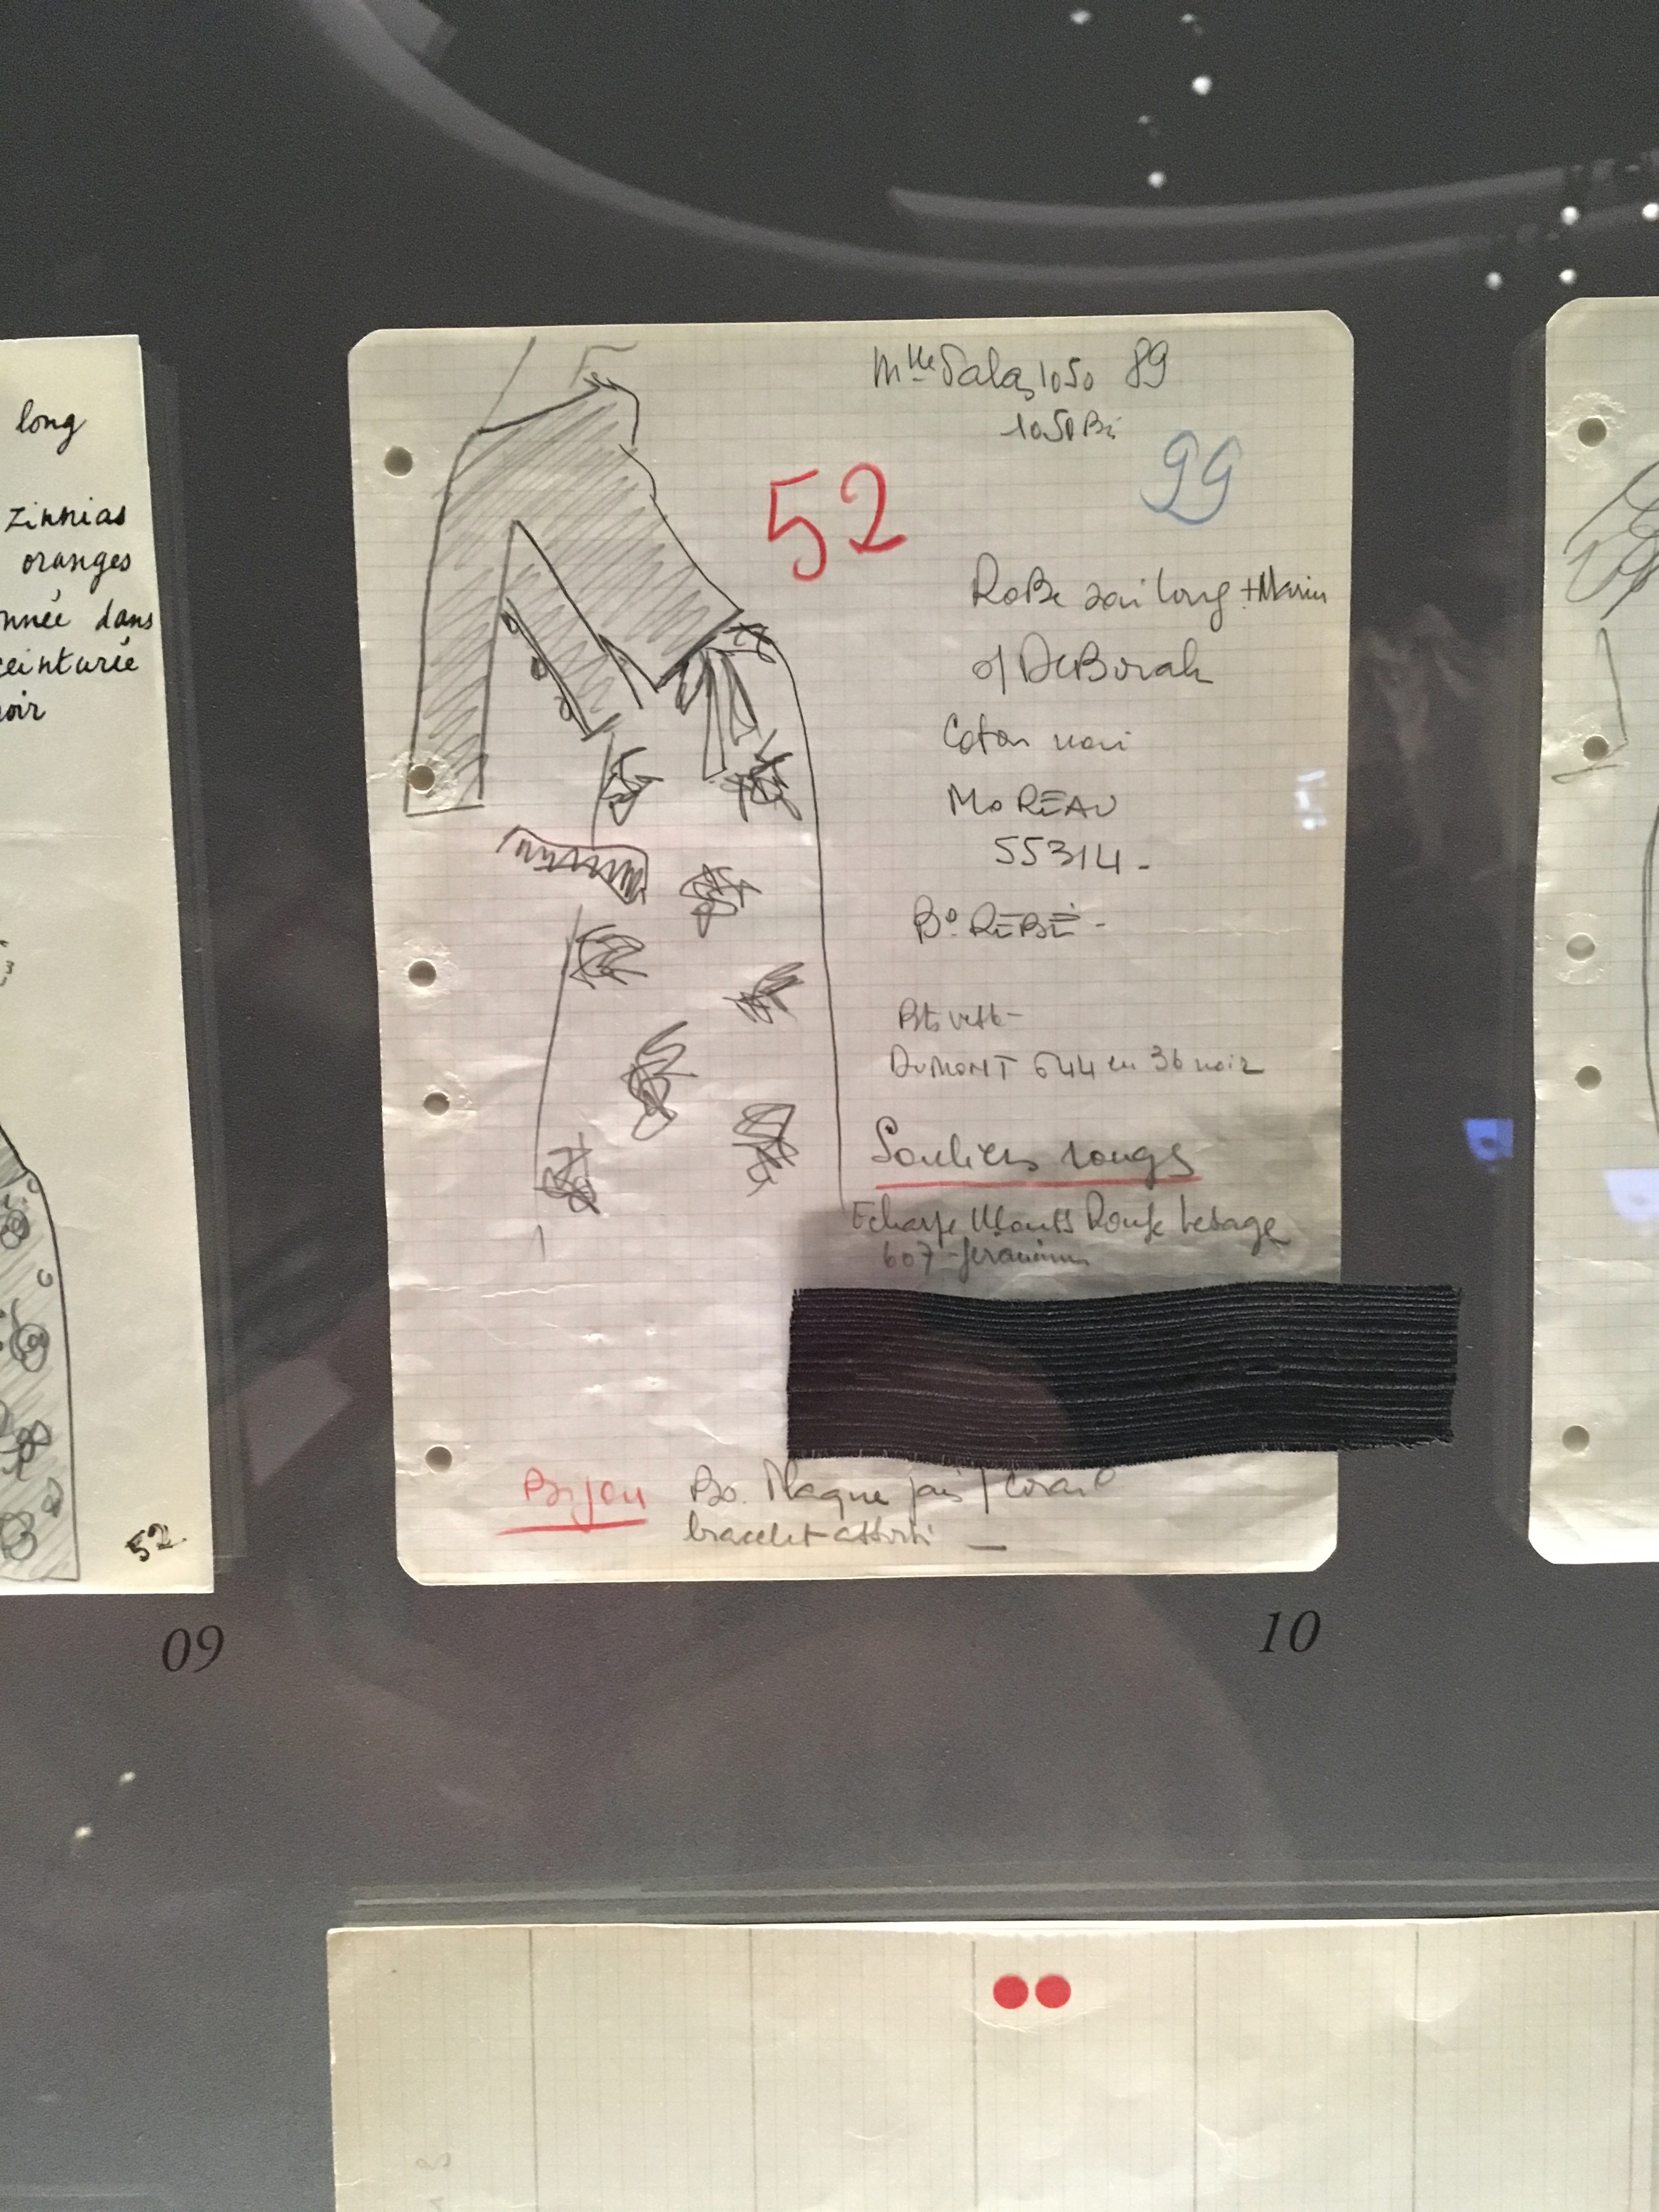 long
zinnias
oranges
nnée dans
ceinturée
oir
52
09
Mlle Salas 1050 89
1050 Bis
52
99
Robe soir long + Marin
s/ DeBorah
Coton noir
MOREAU
55314 -
Bo. REBÉ -
DUMONT 644 en 36 noir
Souliers rouges
Echarpe Rouge Lesage
607 - geranium
Bijou Bo. Plaque jais / Corail
bracelet assorti —
10